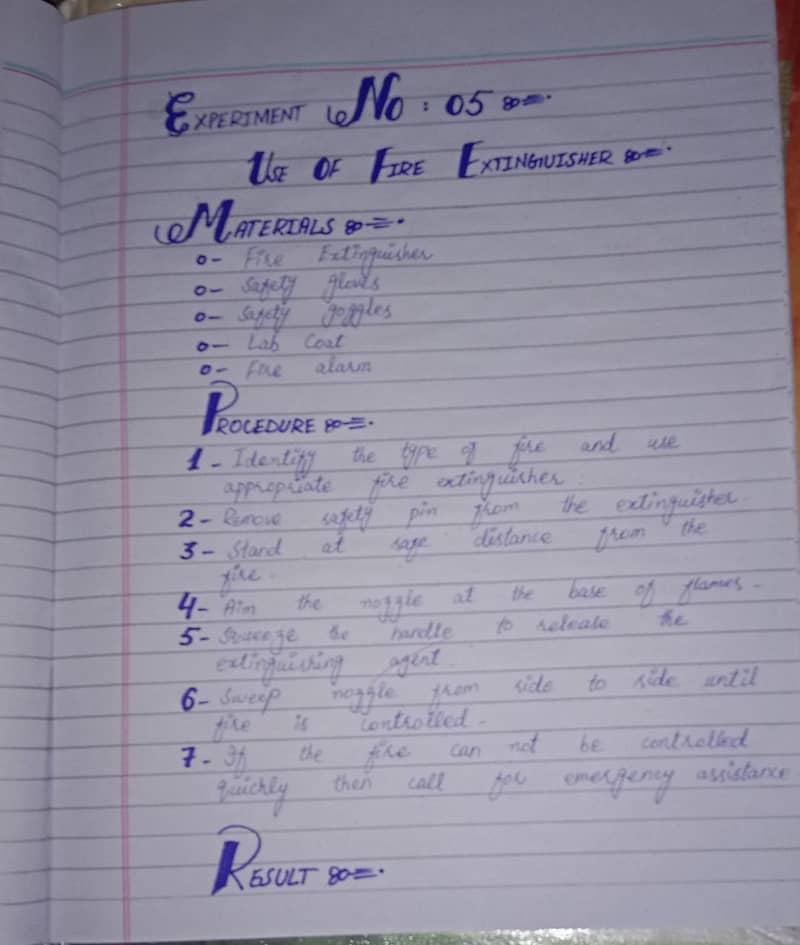 EXPERIMENT NO : 05
USE OF FIRE EXTINGUISHER
MATERIALS
o- Fire Extinguisher
o- Safety gloves
o- Safety goggles
o- Lab Coat
o- Fire alarm
PROCEDURE
1- Identify the type of fire and use
appropriate fire extinguisher.
2- Remove safety pin from the extinguisher.
3- Stand at safe distance from the
fire.
4- Aim the nozzle at the base of flames.
5- Squeeze the handle to release the
extinguishing agent.
6- Sweep nozzle from side to side until
fire is controlled.
7- If the fire can not be controlled
quickly then call for emergency assistance
RESULT